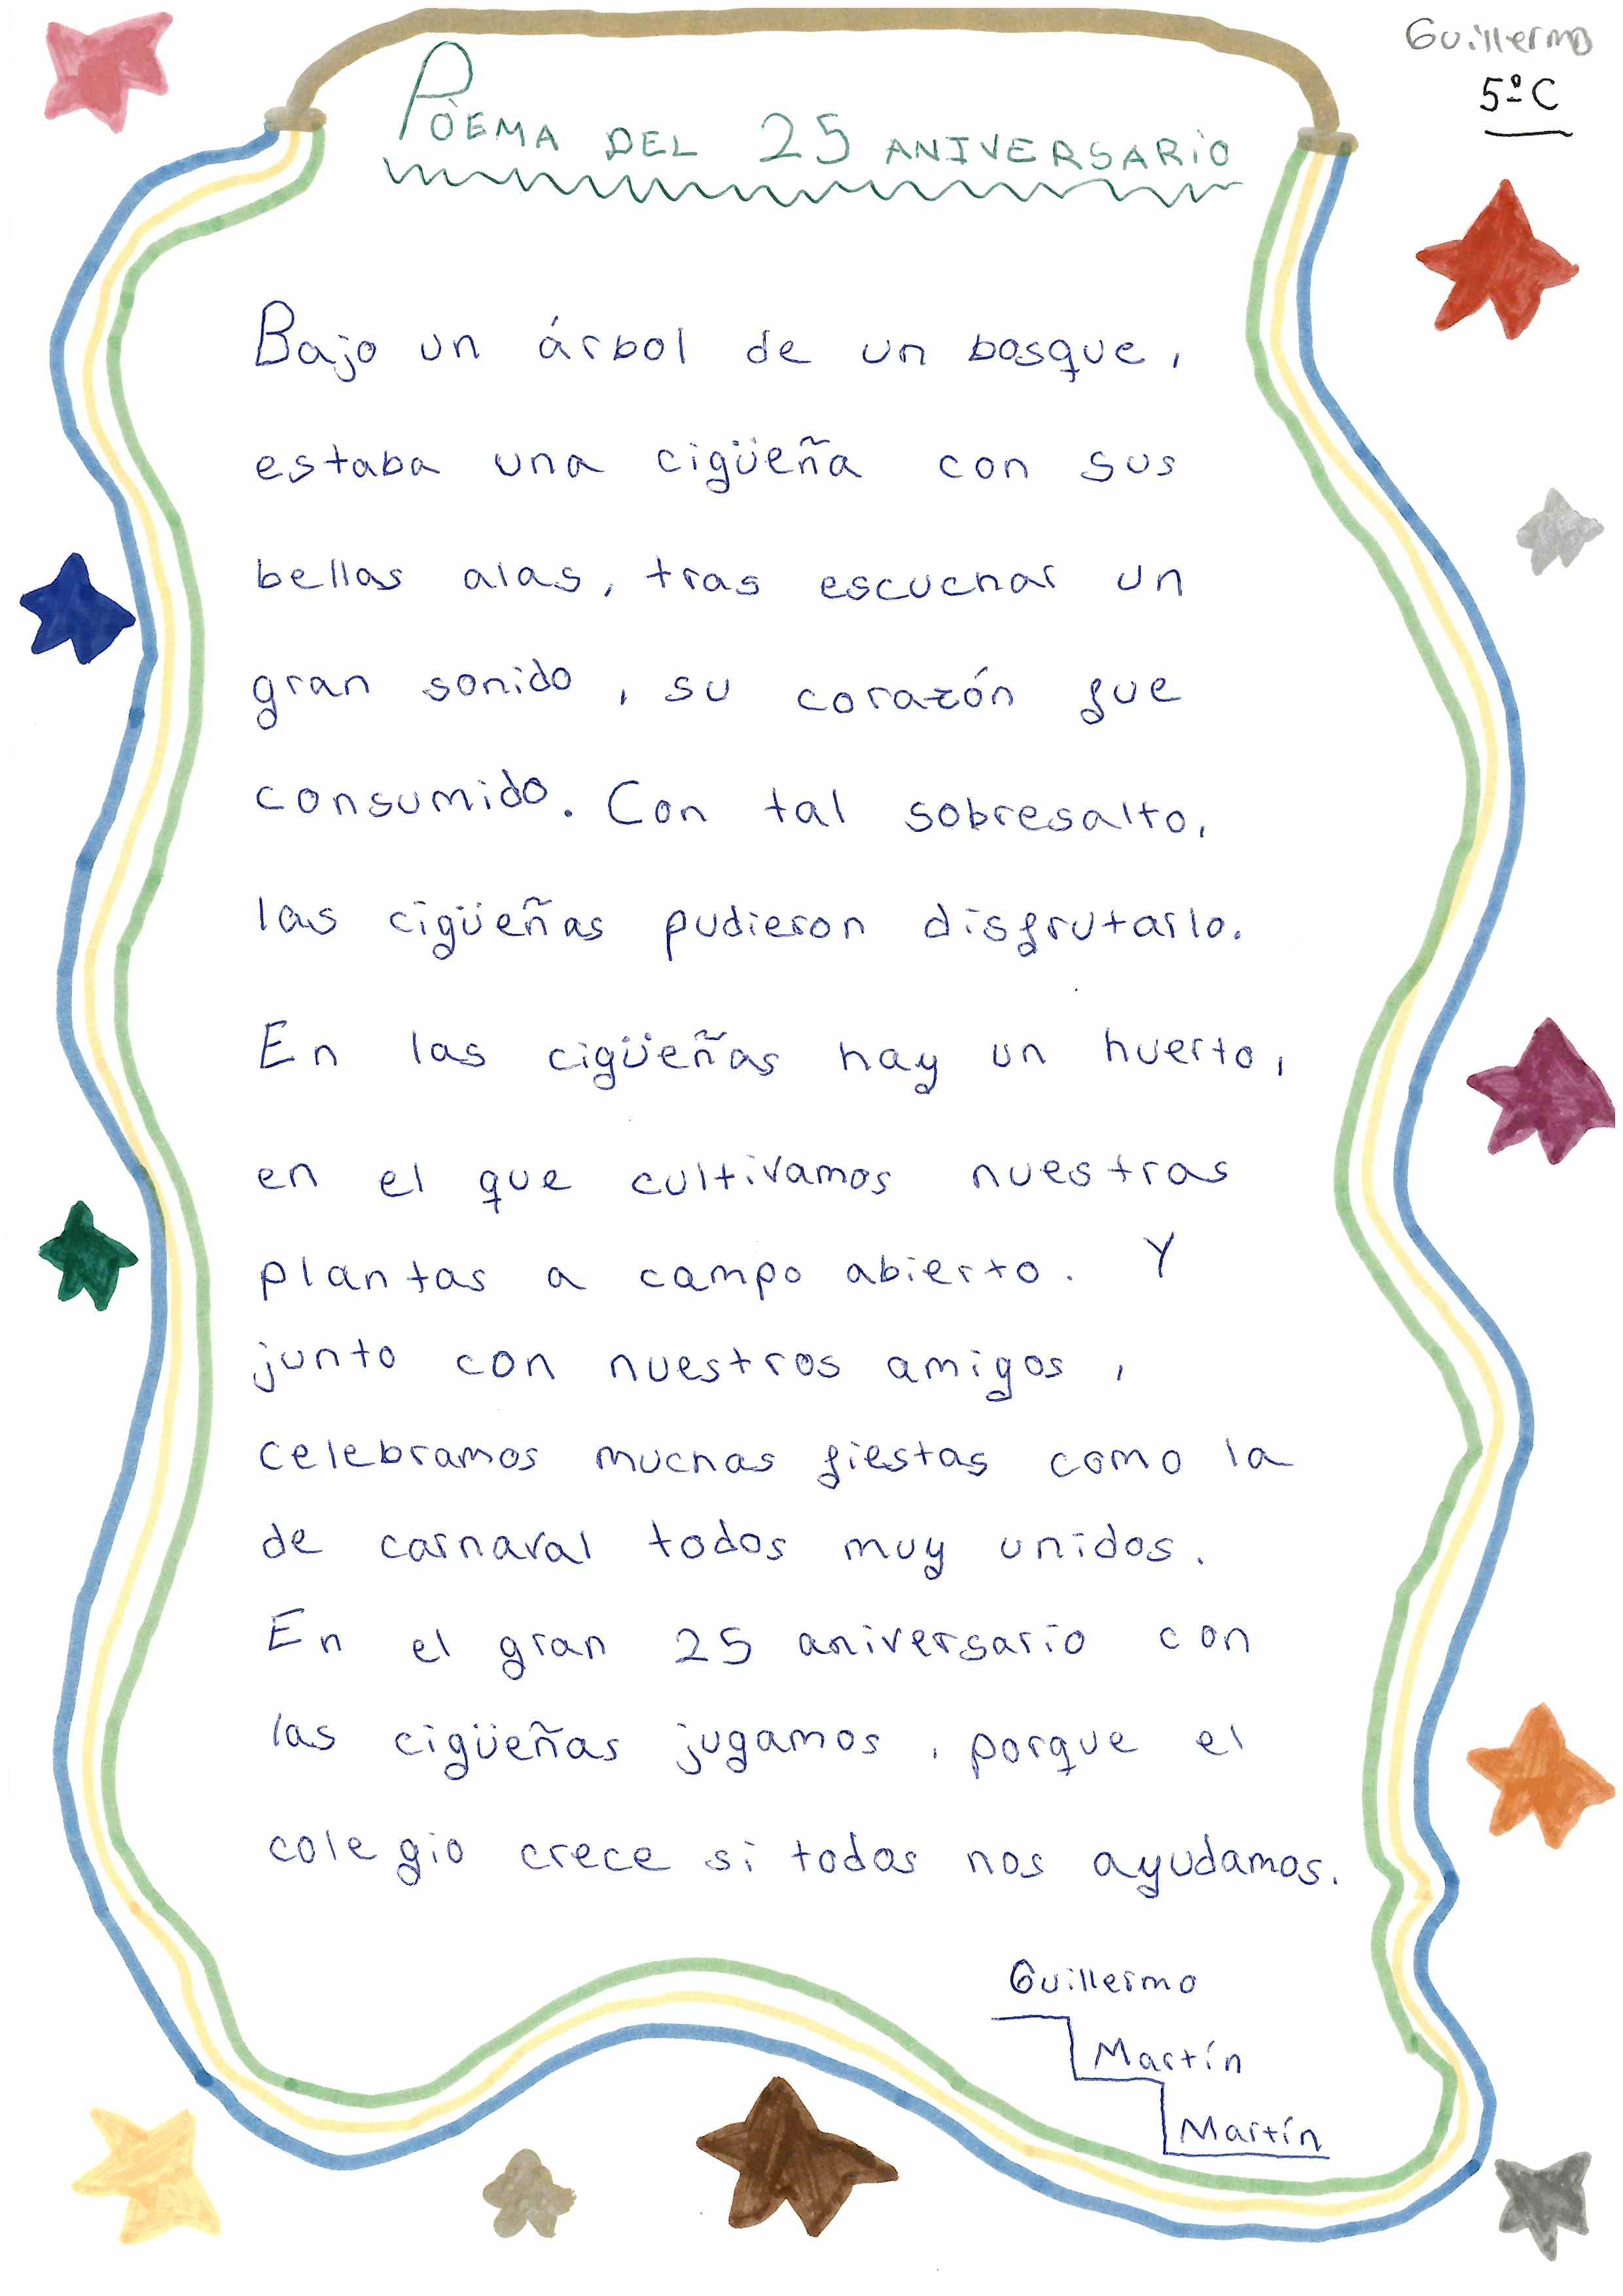 Guillermo
5º C
POEMA DEL 25 ANIVERSARIO
Bajo un árbol de un bosque,
estaba una cigüeña con sus
bellas alas, tras escuchar un
gran sonido, su corazón fue
consumido. Con tal sobresalto,
las cigüeñas pudieron disfrutarlo.
En las cigüeñas hay un huerto,
en el que cultivamos nuestras
plantas a campo abierto. Y
junto con nuestros amigos,
celebramos muchas fiestas como la
de carnaval todos muy unidos.
En el gran 25 aniversario con
las cigüeñas jugamos, porque el
colegio crece si todos nos ayudamos.
Guillermo
Martín
Martín